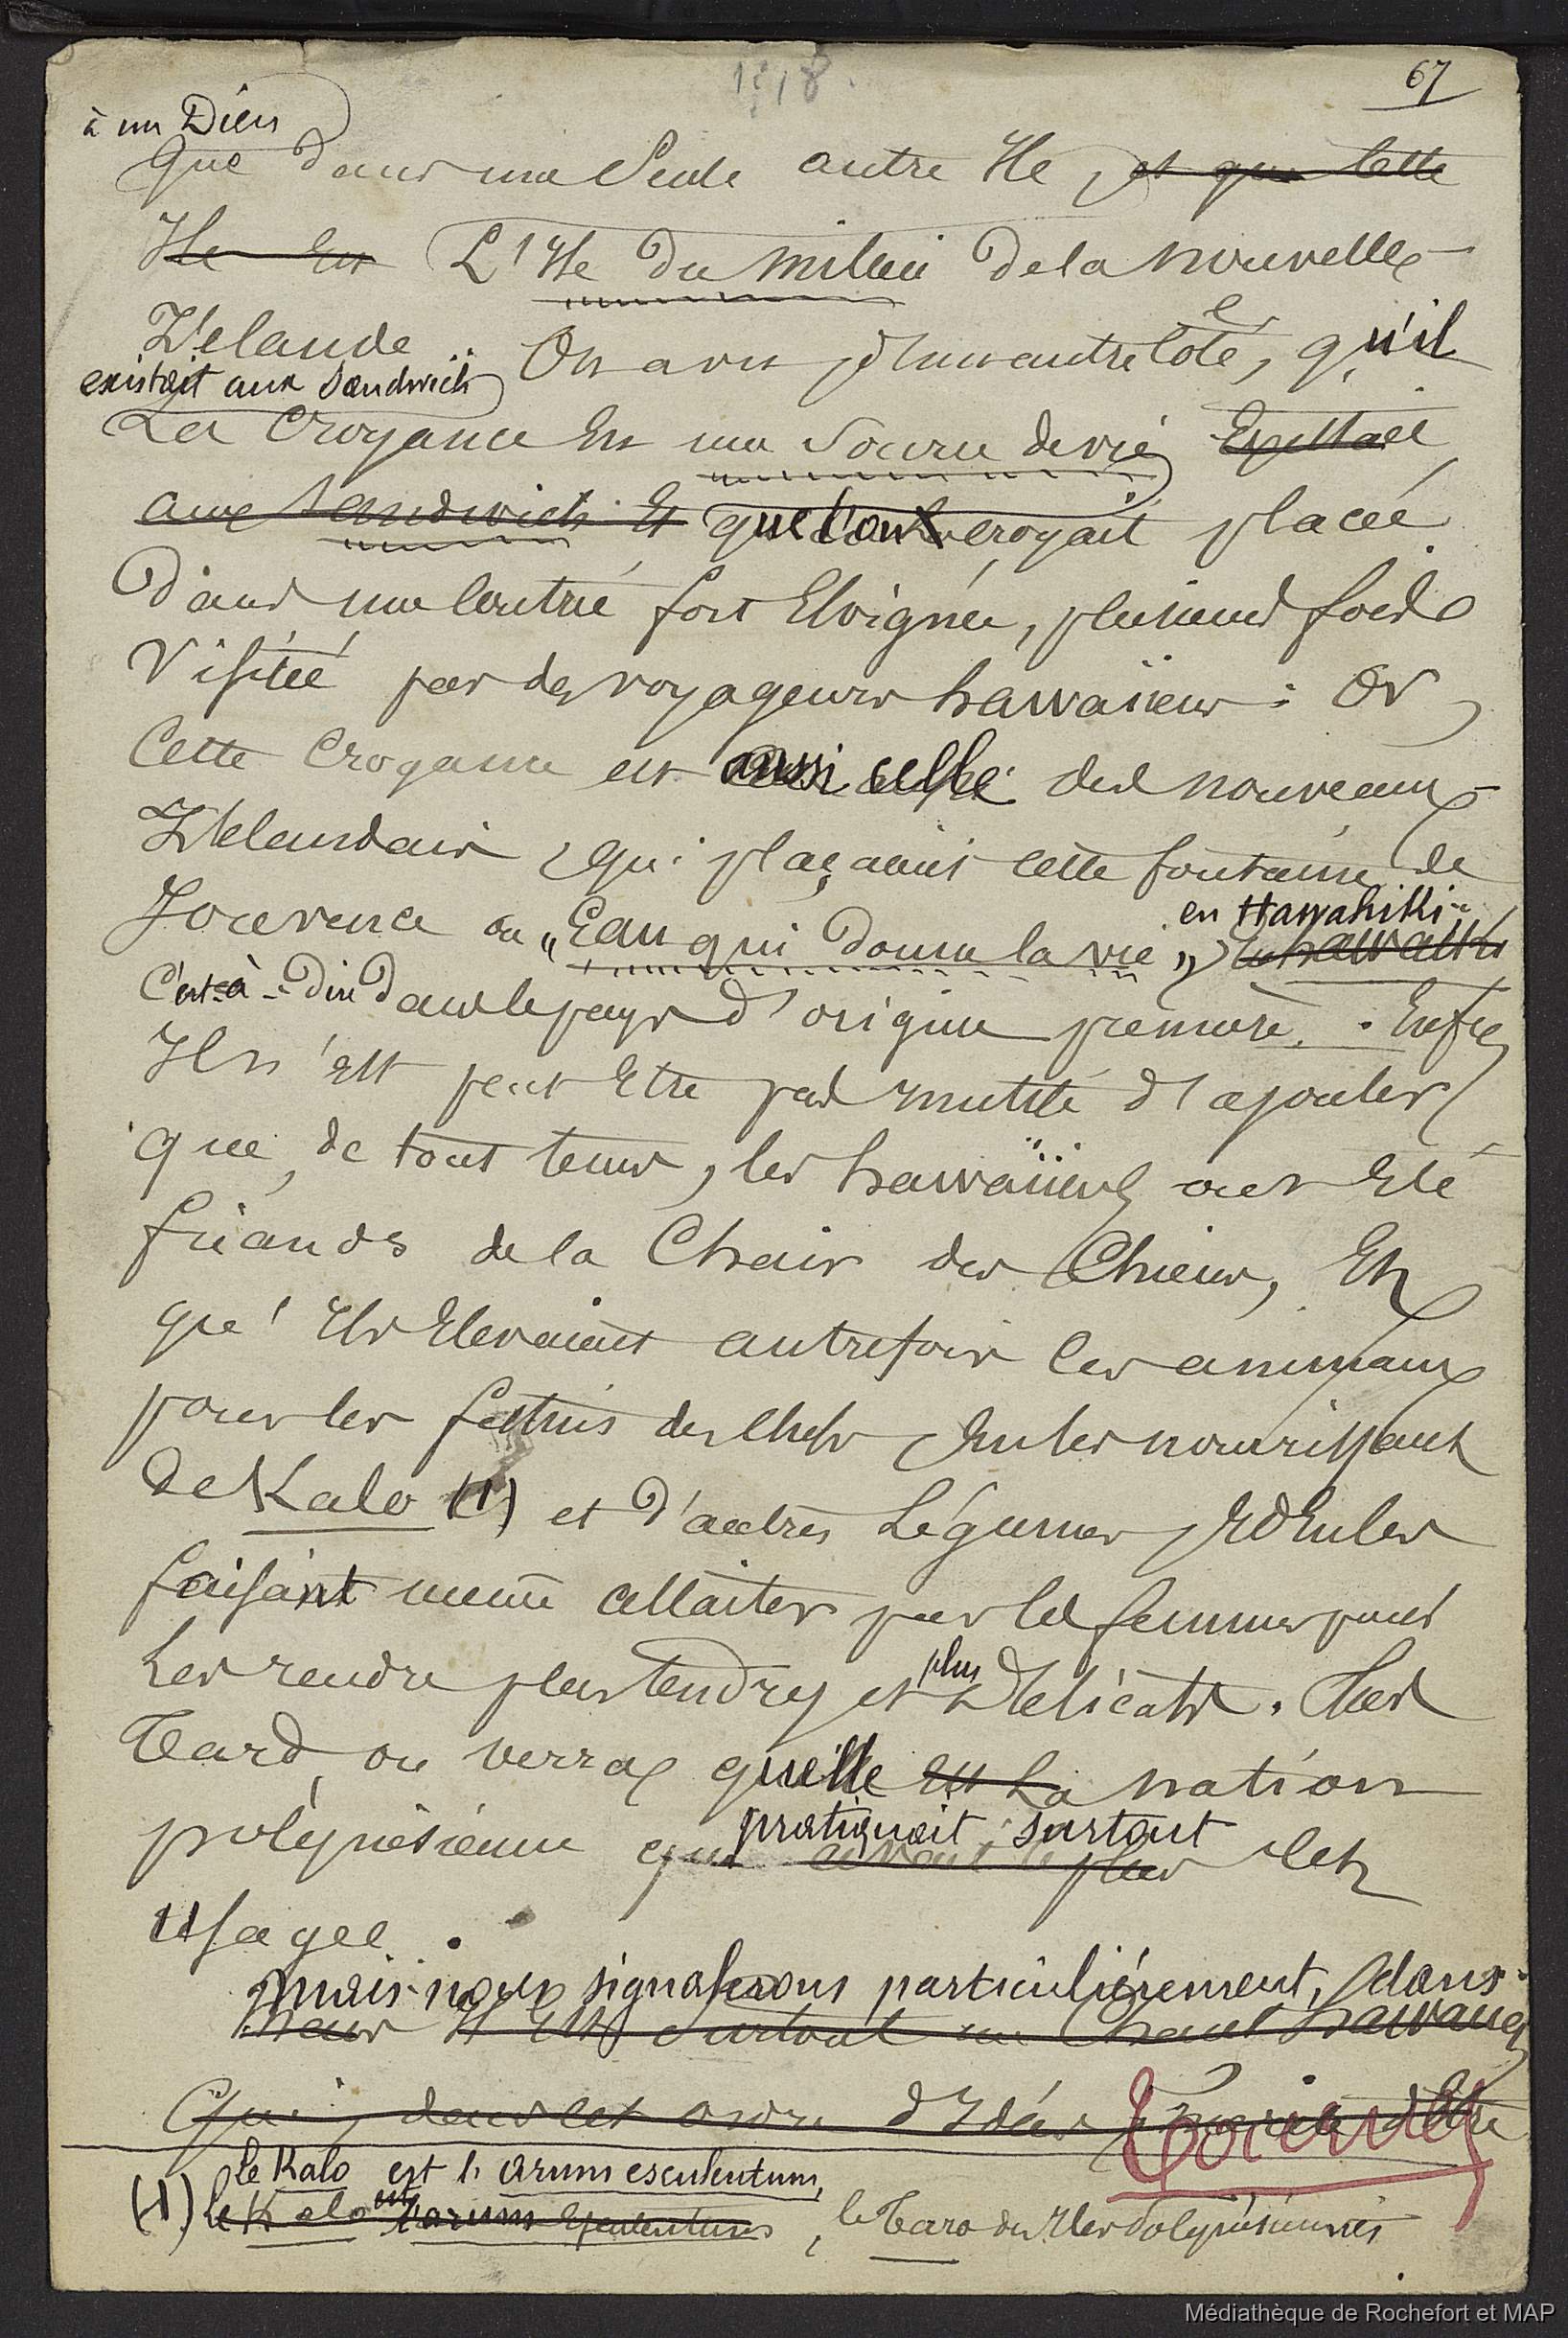 67
à un Dieu
que dans une Seule autre Ile, et que Cette
Ile Est L'Ile du milieu de la nouvelle
Zélande. On a vu, d'un autre Coté, qu'il
existait aux Sandwich
La Croyance En une Source de vie Existait
aux Sandwich Et que l'on croyait placée
Dans une Contrée fort Eloignée, plusieurs fois
Visitée par des voyageurs hawaïiens : Or
Cette Croyance est aussi celle des nouveaux
Zélandais, qui plaçaient cette fontaine de
en Hawahiki
Jouvence ou "Eau qui donne la vie",
C'est-à-Dire Dans le pays d'origine première. Enfin
Il n'Est peut Etre pas inutile d'ajouter
que, de tout tems, les hawaïiens ont Eté
friands de la Chair des Chiens, Et
qu'Ils Elevaient autrefois les animaux
pour les festins des Chefs, En les nourrissant
de Kalo (1) et d'autres Légumes, Et En les
faisant même allaiter par les femmes pour
plus
Les rendre plus tendres et Délicats. Plus
Tard, on verra quelle est La nation
pratiquait surtout
polynésienne qui avait le plus cet
usage.
mais nous signalerons particulièrement, dans
mais Il Est Surtout un Chant hawaiien
Qui, dans cet ordre d'Idées, mérite d'être
Le Kalo est l'arum esculentum,
(1) Le Kalo est l'arum esculentum, le Taro des Iles Polynésiennes
Médiathèque de Rochefort et MAP